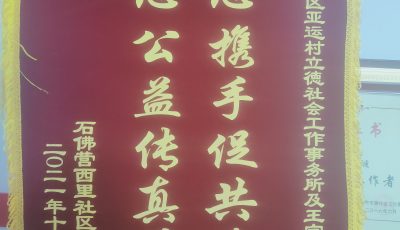 区亚运村立德社会工作事务所及王
携手促共
公益传真
石佛营西里社区
二〇二一年十
书
工作者